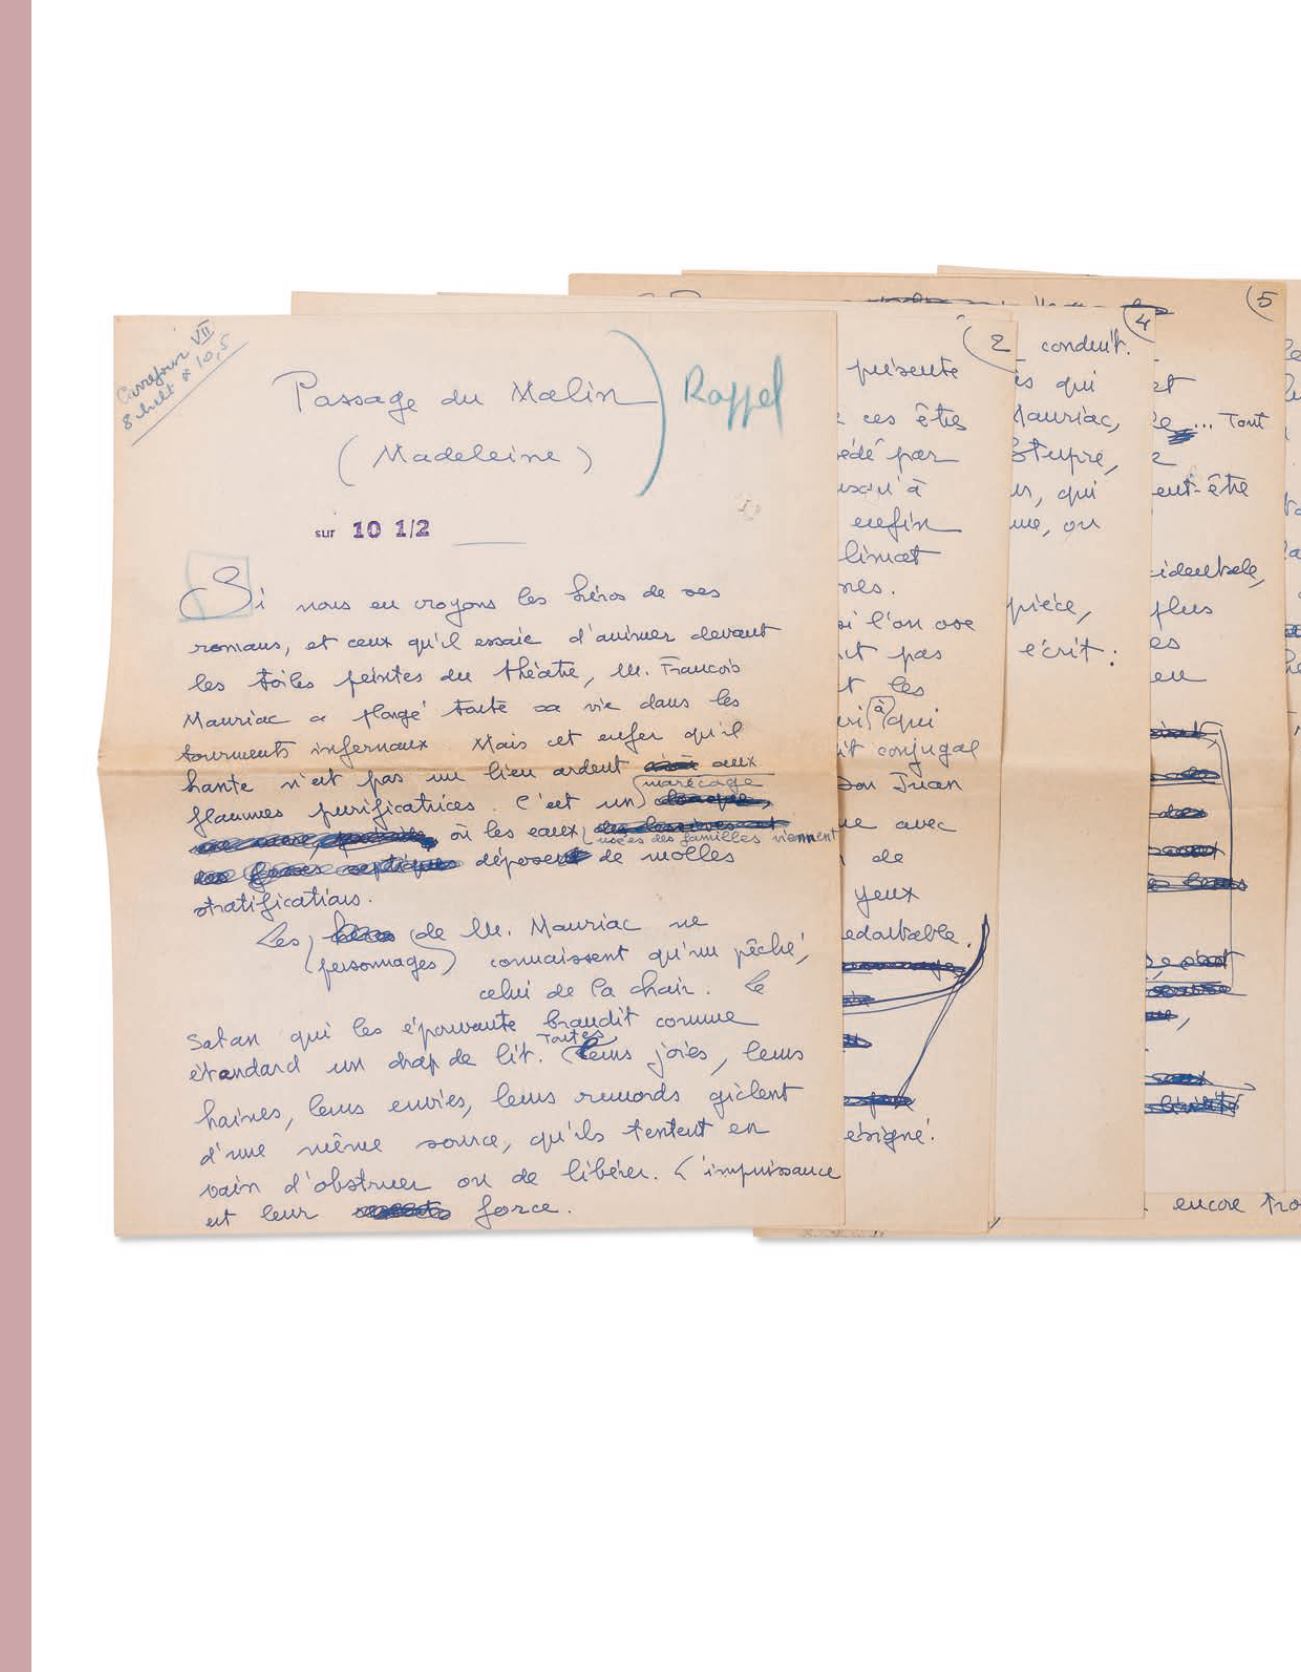 Carrefour VII
8 hult * 10,5
Passage du Malin
(Madeleine)
Rappel
sur 10 1/2
Si nous en croyons les héros de ses
romans, et ceux qu'il essaie d'animer devant
les toiles peintes du théatre, M. Francois
Mauriac a plongé toute sa vie dans les
tourments infernaux. Mais cet enfer qu'il
hante n'est pas un lieu ardent aux
marécage
flammes purificatrices. C'est un
où les eaux
usées des familles viennent
déposer de molles
stratifications.
Les de M. Mauriac ne
(personnages) connaissent qu'un pêché,
celui de la chair. Le
Satan qui les épouvante brandit comme
Toutes
étandard un drap de lit. leurs joies, leurs
haines, leurs envies, leurs remords giclent
d'une même source, qu'ils tentent en
vain d'obstruer ou de libérer. L'impuissance
est leur force.
2
présente
ces êtes
édé par
usqu'à
enfin
limat
nes.
si l'on ose
it pas
t les
à qui
it conjugal
Don Juan
ue avec
de
yeux
edoutable.
ésigné.
4
conduit.
is qui
Mauriac,
Stupre,
ur, qui
me, ou
pièce,
écrit :
5
et
... Tout
eut-être
cidentale,
plus
es
eu
encore tro